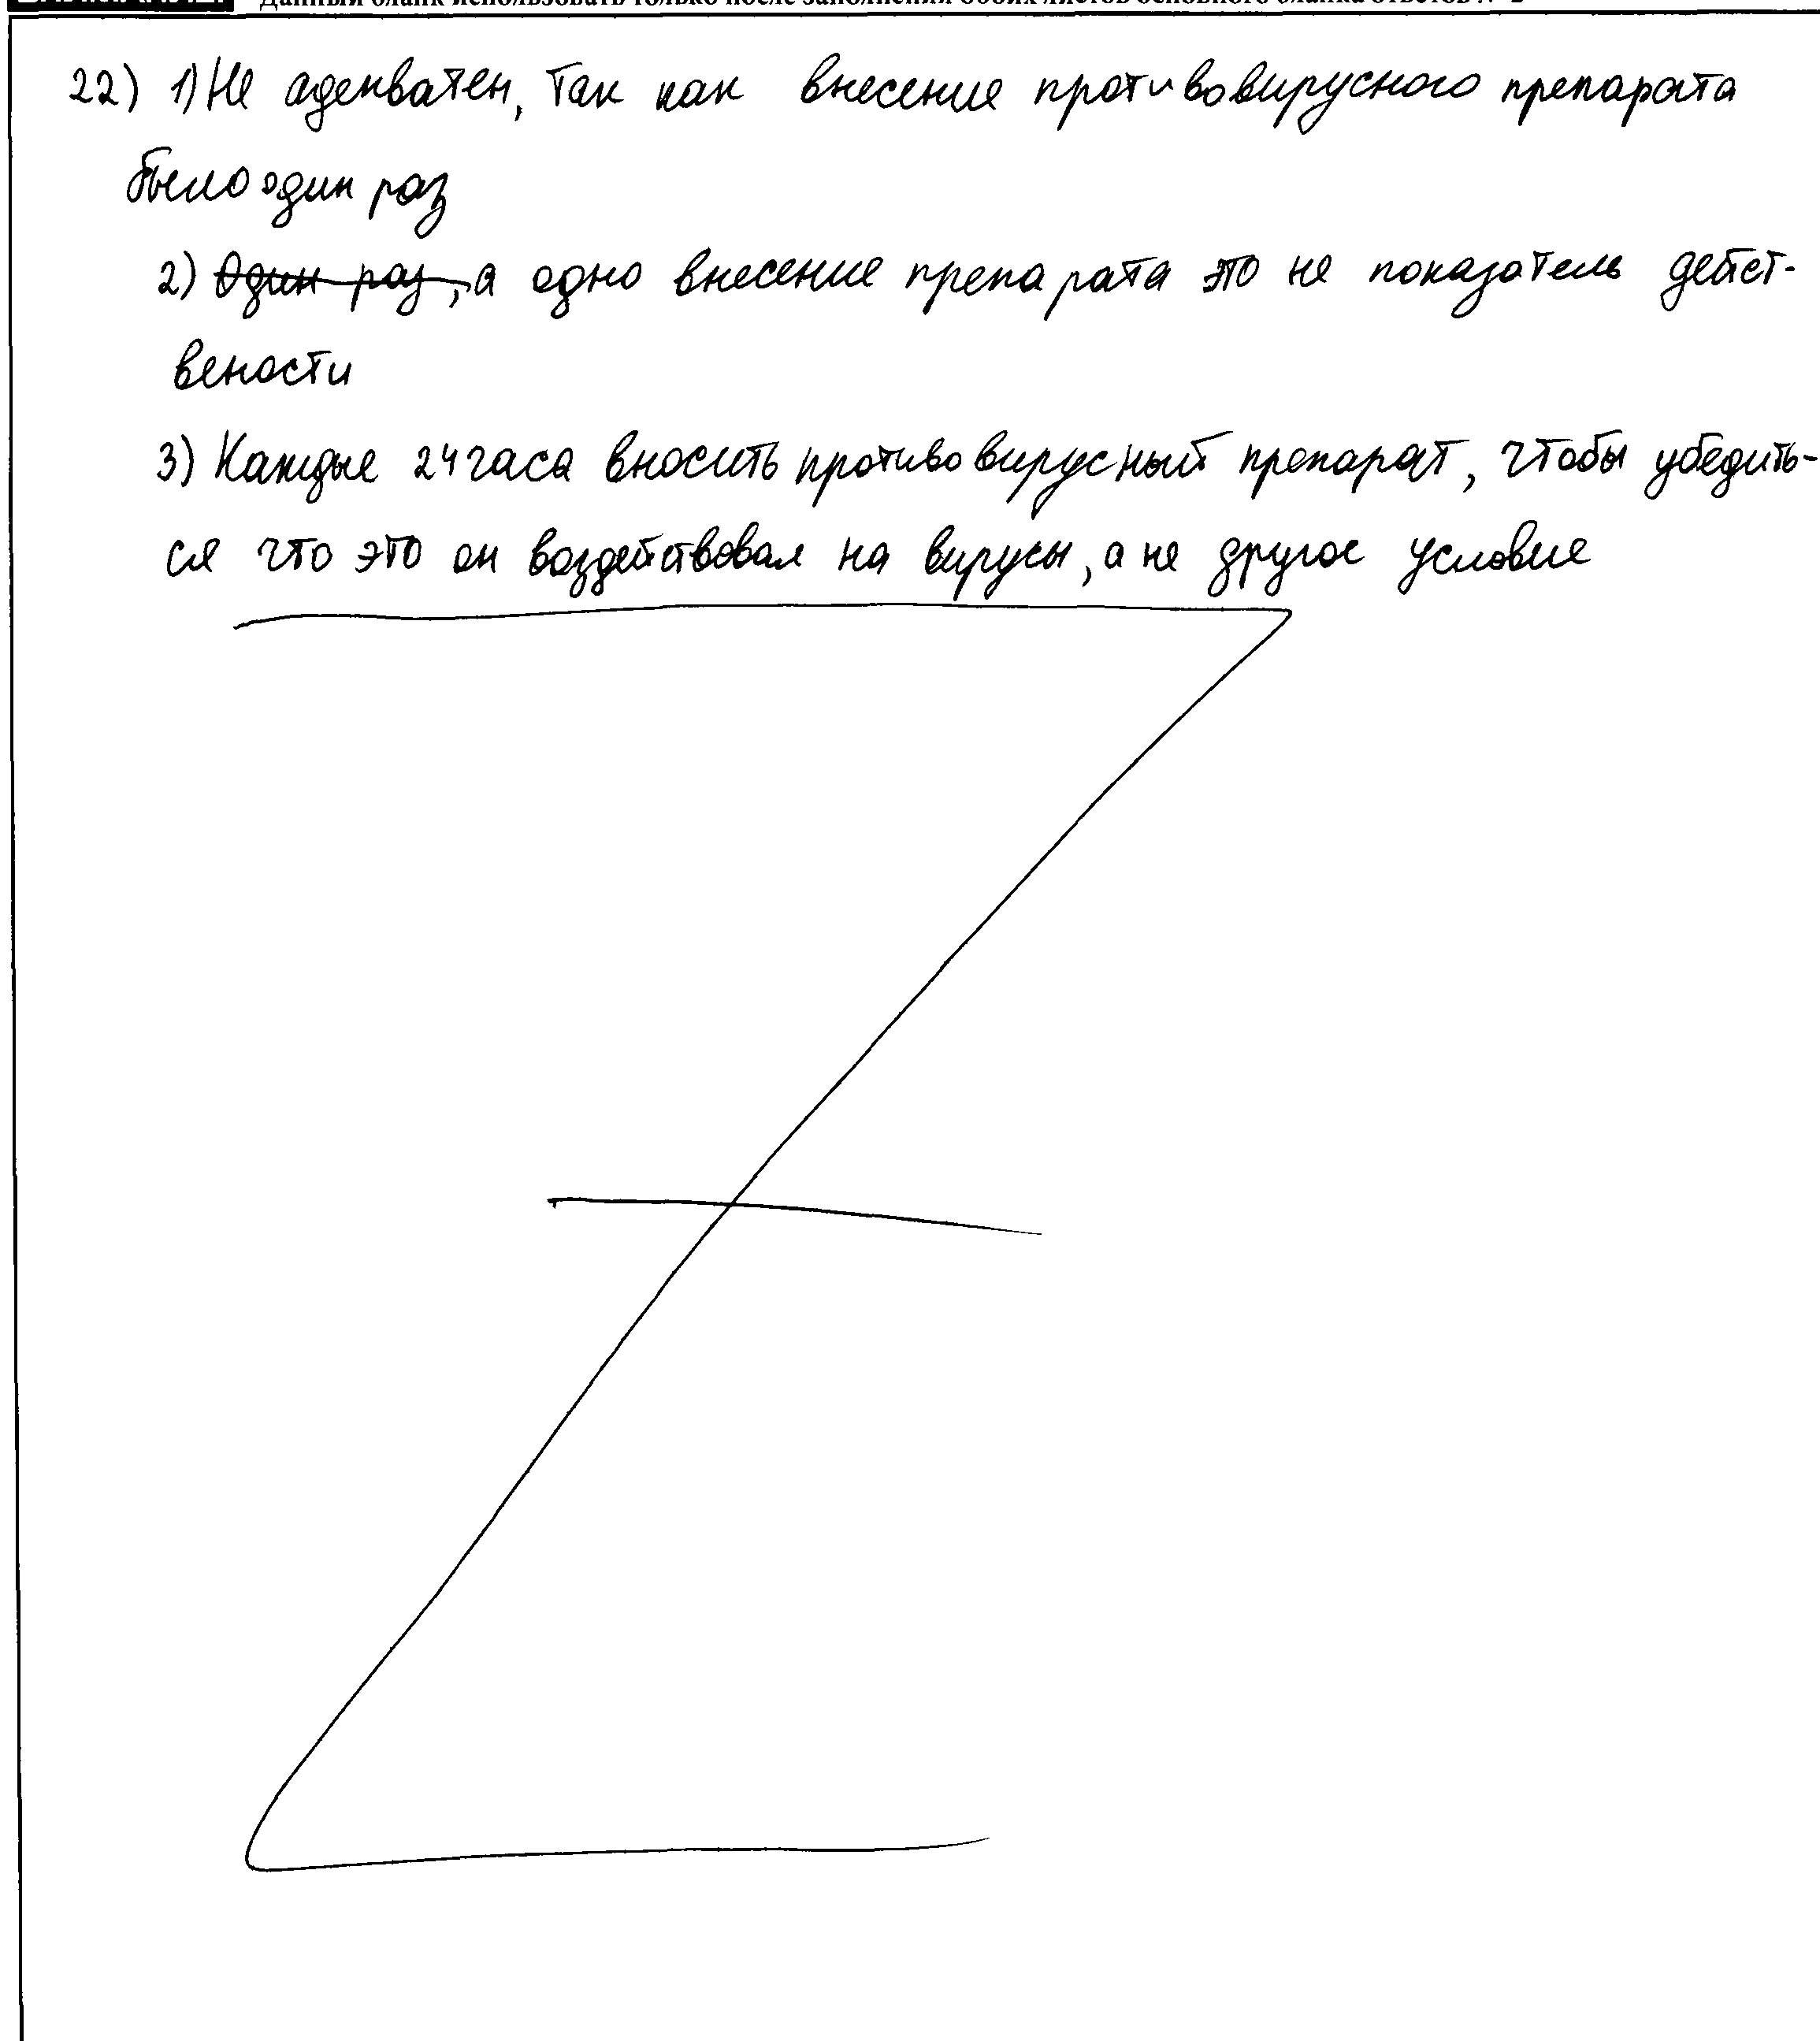 Данный бланк использовать только после заполнения обоих листов основного бланка ответов № 2
22) 1) Не адекватен, так как внесение противовирусного препарата
было один раз
2) Один раз, а одно внесение препарата это не показатель дейст-
вености
3) Каждые 24 часа вносить противовирусный препарат, чтобы убедить-
ся что это он воздействовал на вирусы, а не другое условие